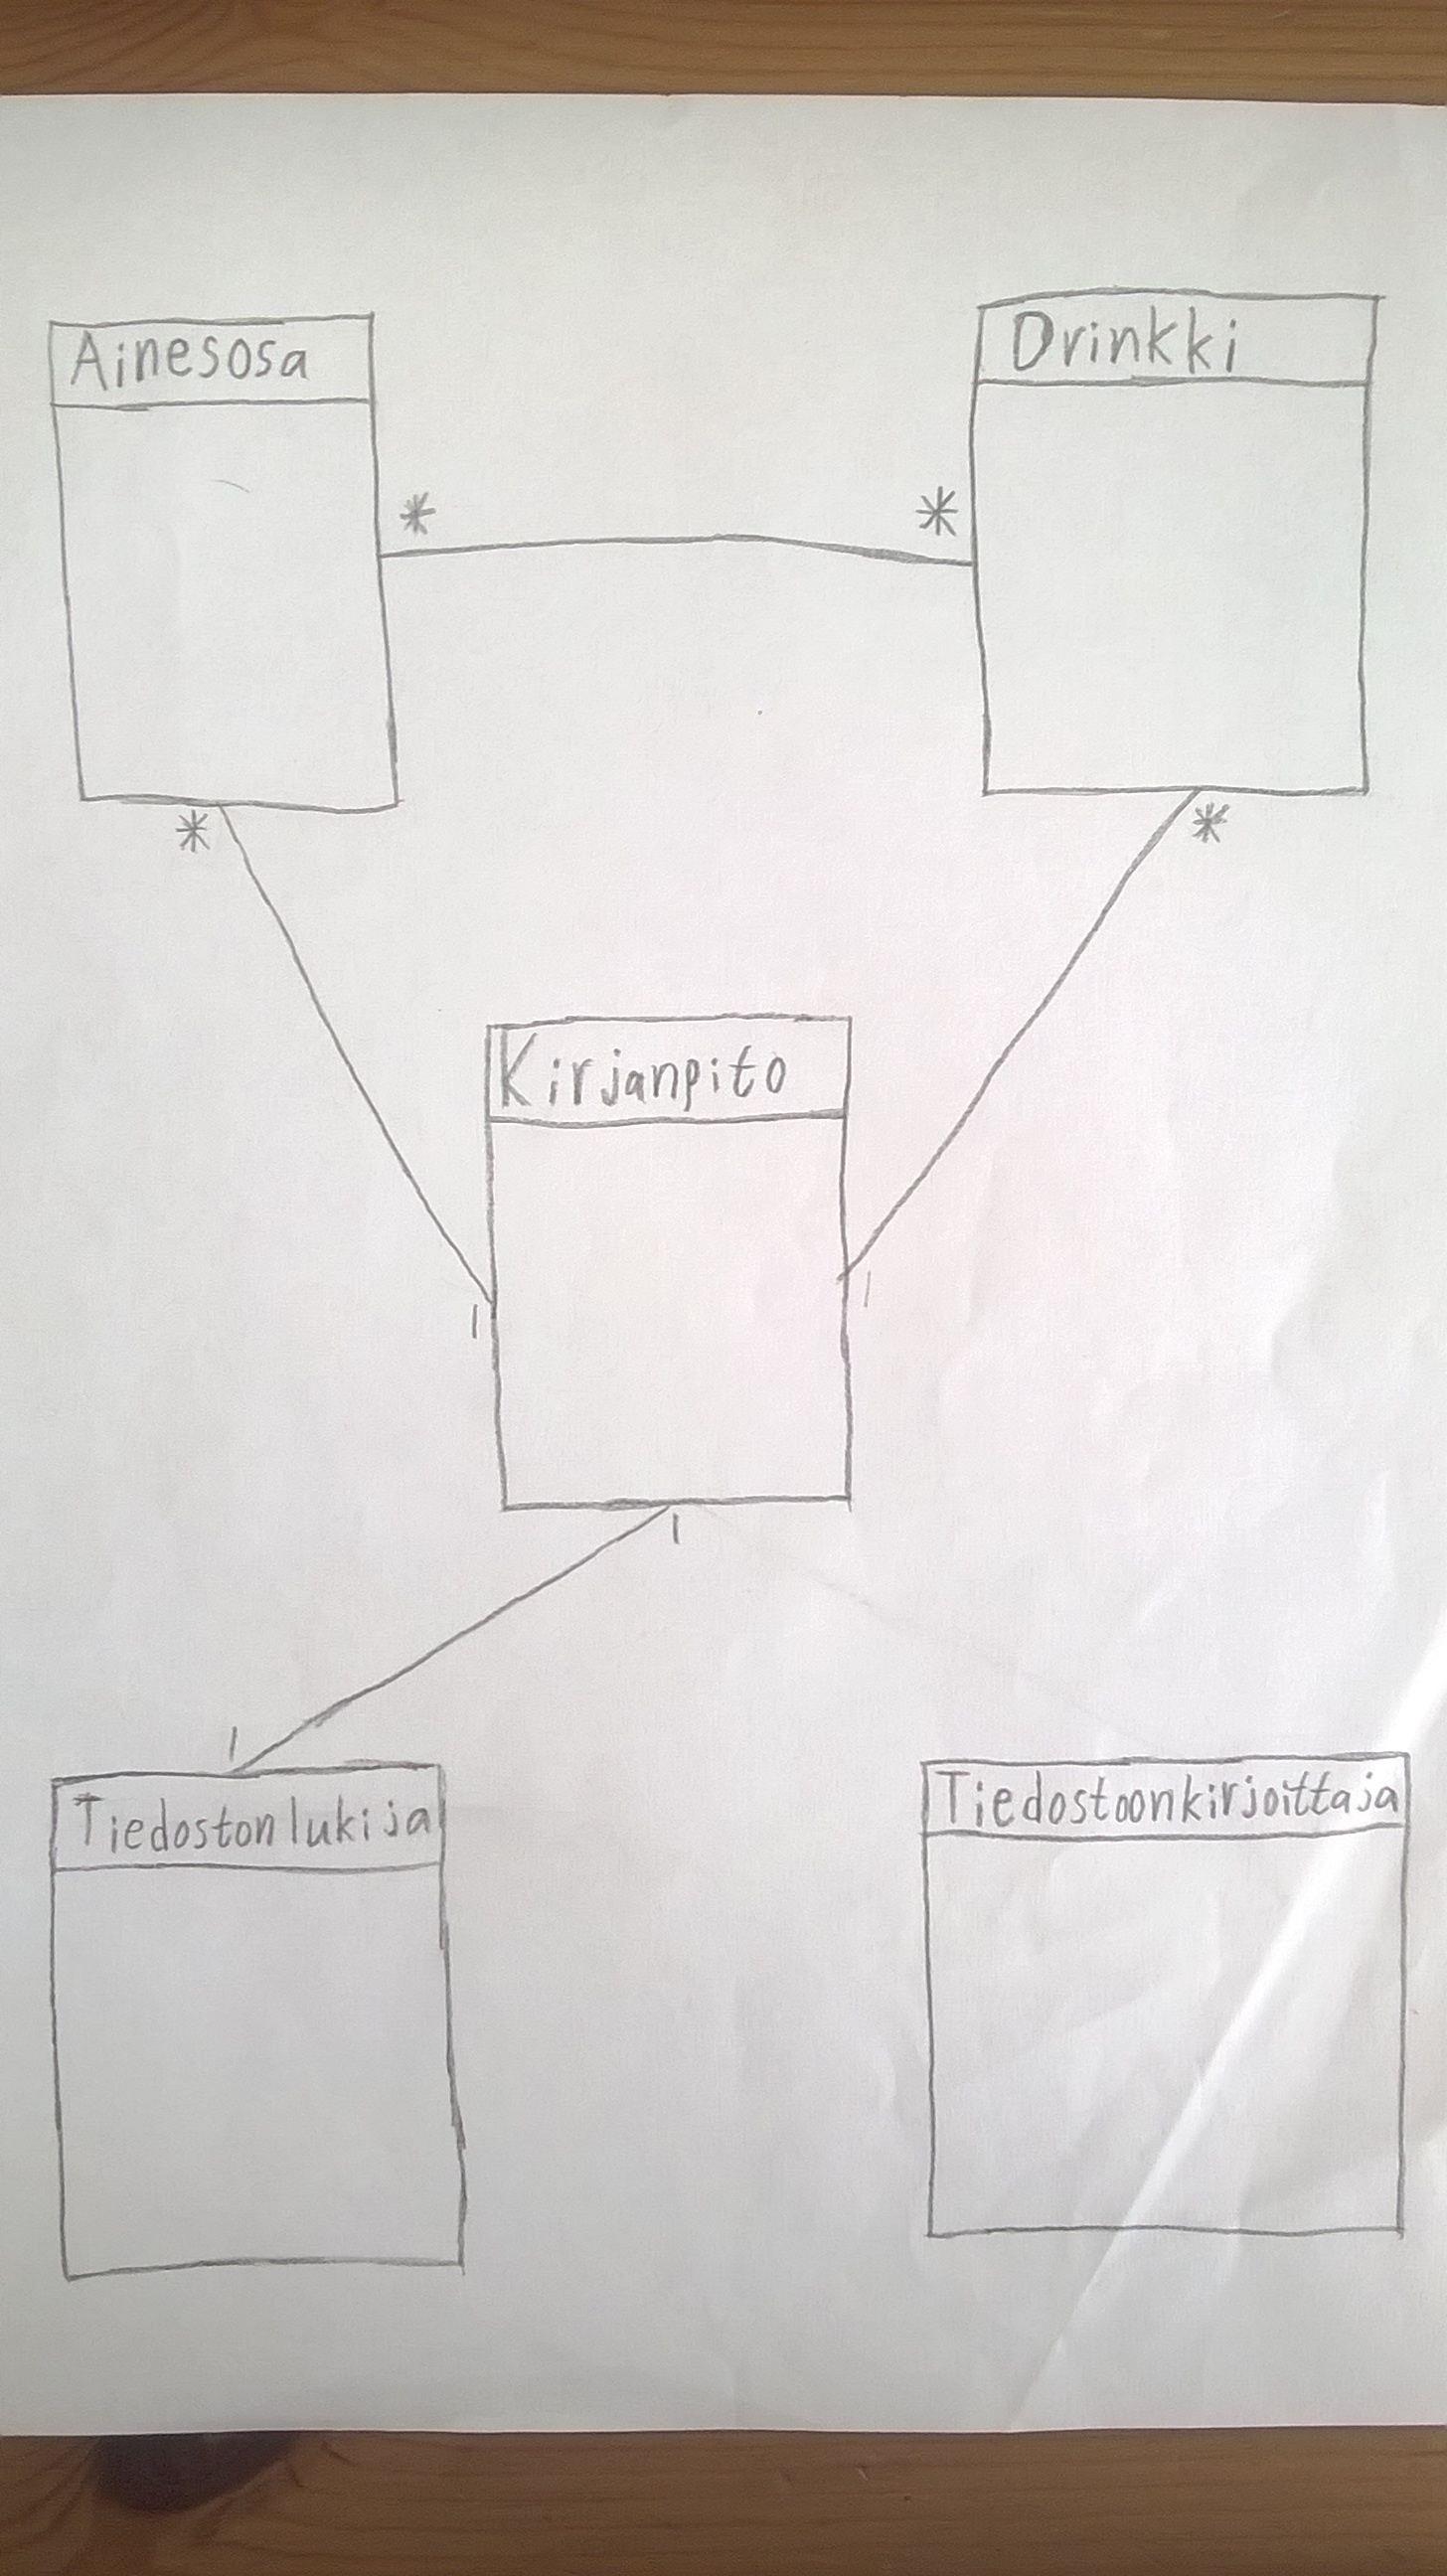 Ainesosa
Drinkki
*
*
*
*
Kirjanpito
1
1
1
1
Tiedostonlukija
Tiedostoonkirjoittaja